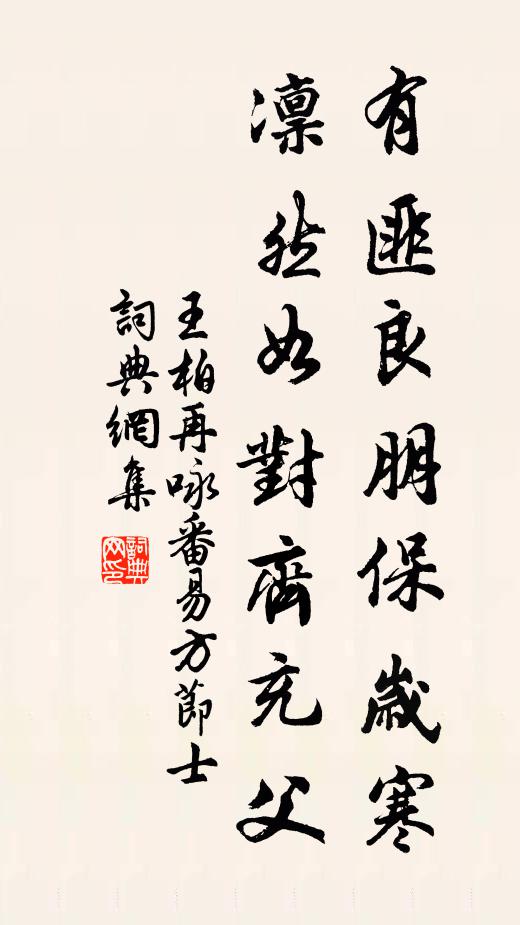 有匪良朋保歲寒
凜然如對齊充父
王柏再咏番易方節士
詞典網集
詞典网印